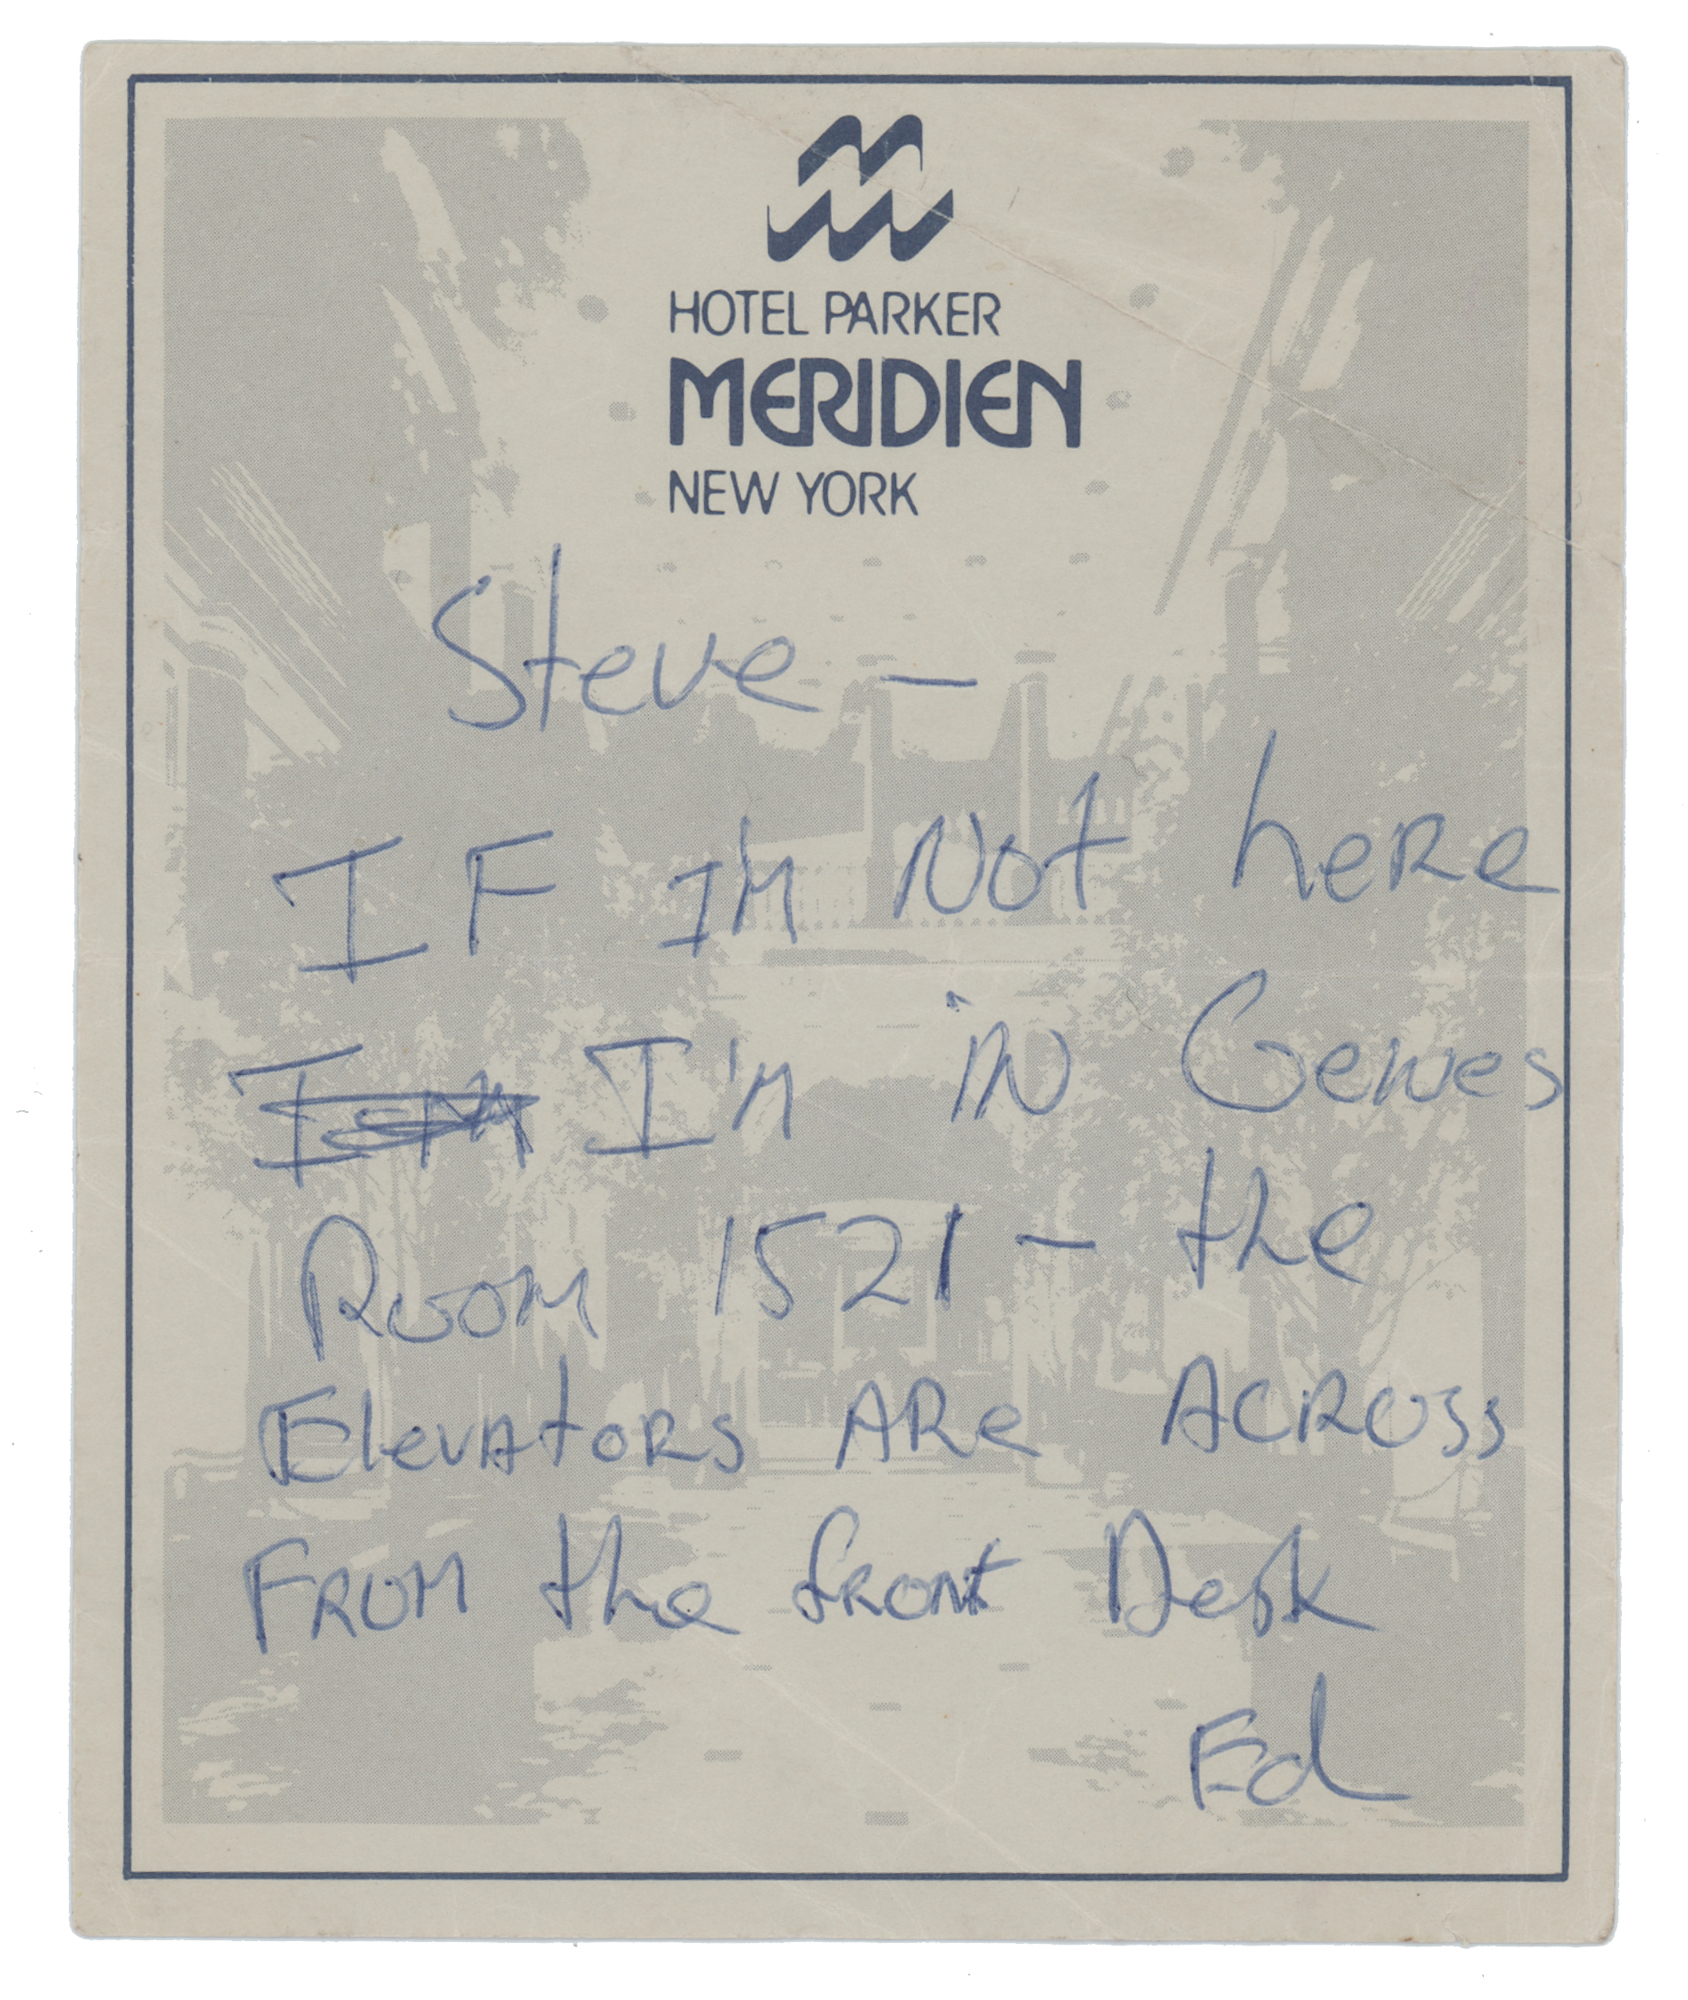 HOTEL PARKER
MERIDIEN
NEW YORK
Steve —
IF I'M Not heRe
I'M iN Genes
Room 1521 — the
ElevAtoRs ARe ACRoss
FRoM the fRoNt Desk
Ed